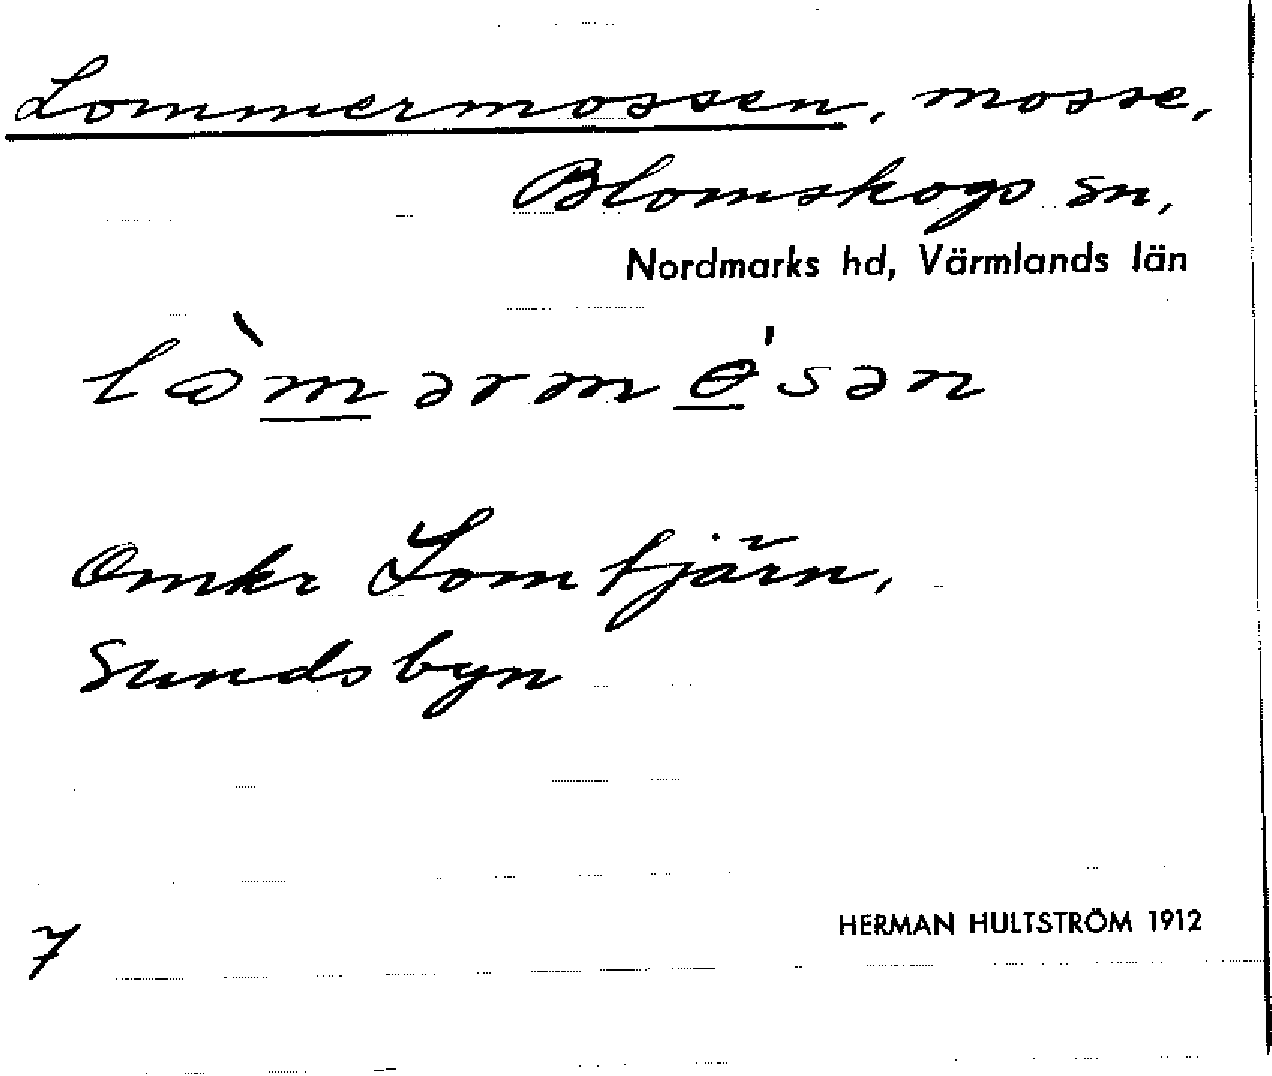 Lommermossen, mosse,
Blomskogs sn,
Nordmarks hd, Värmlands län
Omkr Lomtjärn,
Sundsbyn
7
HERMAN HULTSTRÖM 1912